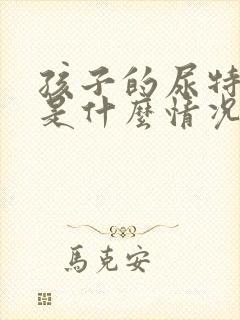 孩子的尿特
是什麼情況
馬克安